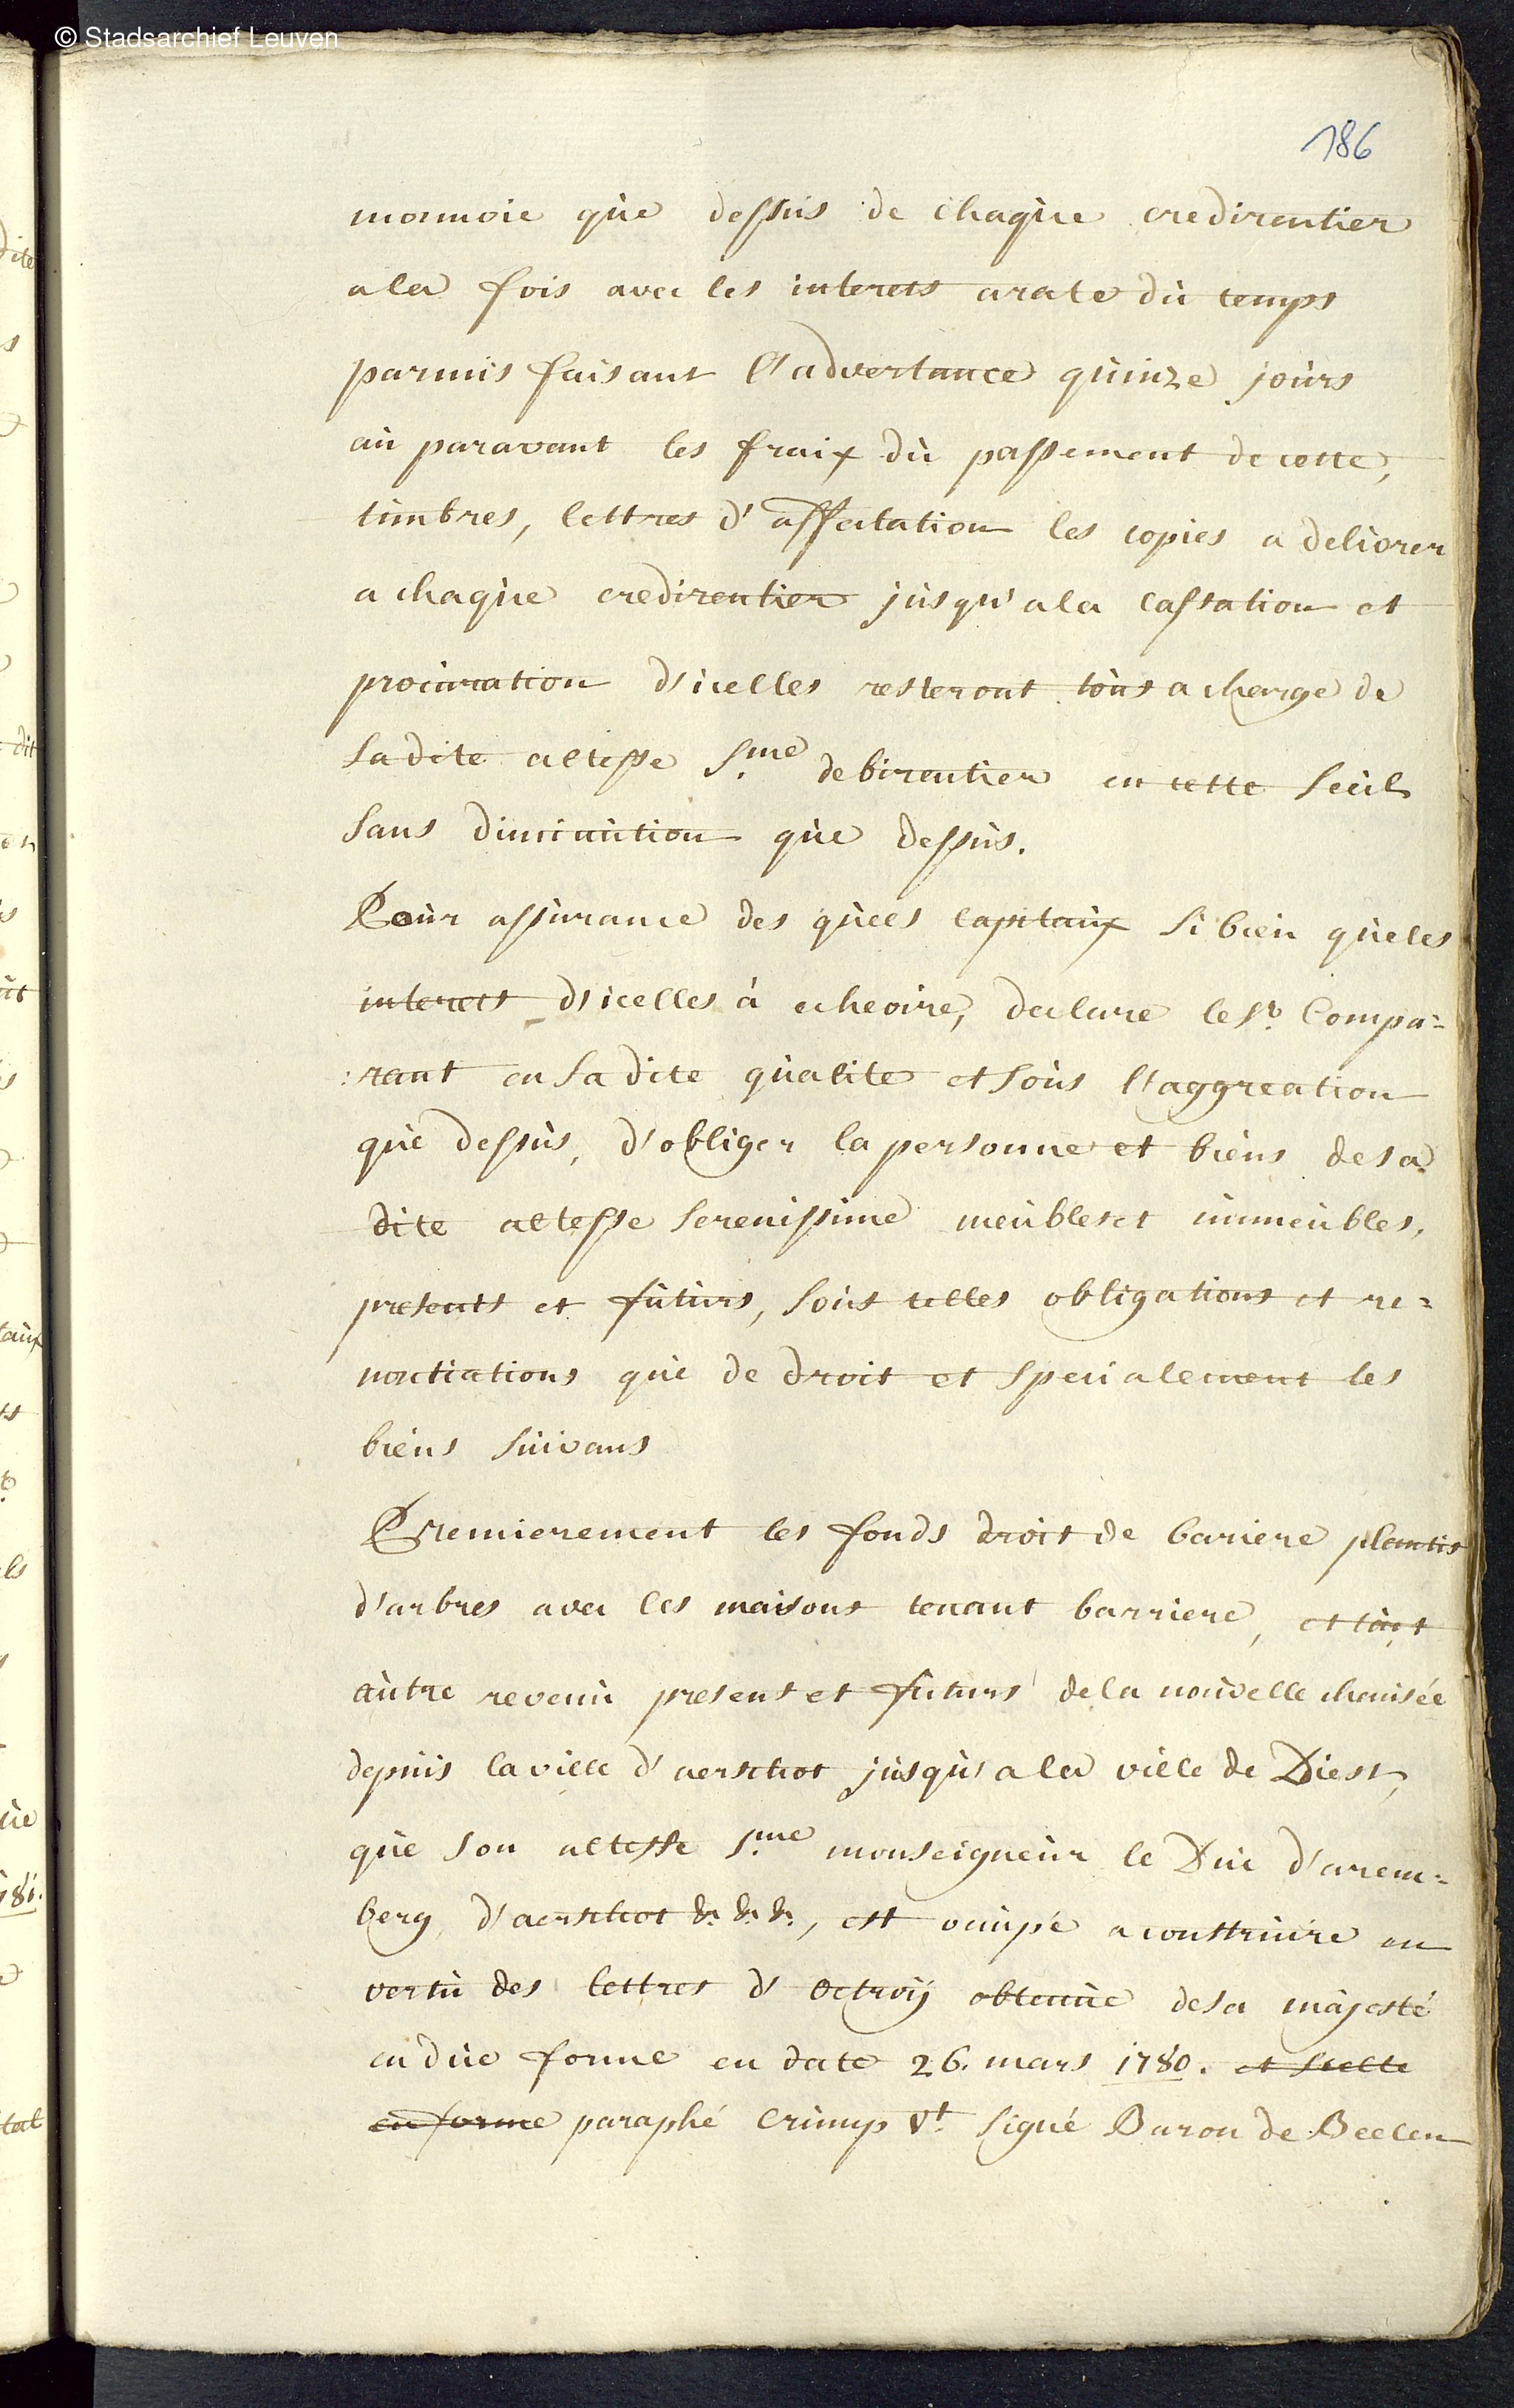 © Stadsarchief Leuven
186
monnoie que dessus de chaque credirentier
a la fois avec les interets a rate du temps
parmis faisant l'advertance quinze jours
au paravant les fraix du passement de cette,
timbres, lettres d'affectation les copies a delivrer
a chaque credirentier jusqu'a la cassation et
procuration d'icelles resteront tous a charge de
sa dite altesse S.me debirentier en cette seul
sans diminution que dessus.
Pour assurance des quels capitaux si bien que les
interets d'icelles à echeoire, declare le Sr. Compa=
:rant en sa dite qualite et sous l'aggreation
que dessus, d'obliger la personne et biens de sa
dite altesse serenissime meubles et immeubles,
presents et futurs, sous telles obligations et re=
nontiations que de droit et specialement les
biens suivans
Premierement les fonds droit de bariere plantis
d'arbres avec les maisons tenant barriere, et tout
autre revenu present et futurs de la nouvelle chausée
depuis la ville d'aerschot jusqu'a la ville de Diest,
que son altesse S.me monseigneur le Duc d'arem=
berg, d'aerschot &. &. &., est occupé a construire en
vertu des lettres d'Octroÿ obtenue de sa majesté
en due forme en date 26. mars 1780. et scelle
en forme paraphé Crump Vt. signé Baron de Beelen